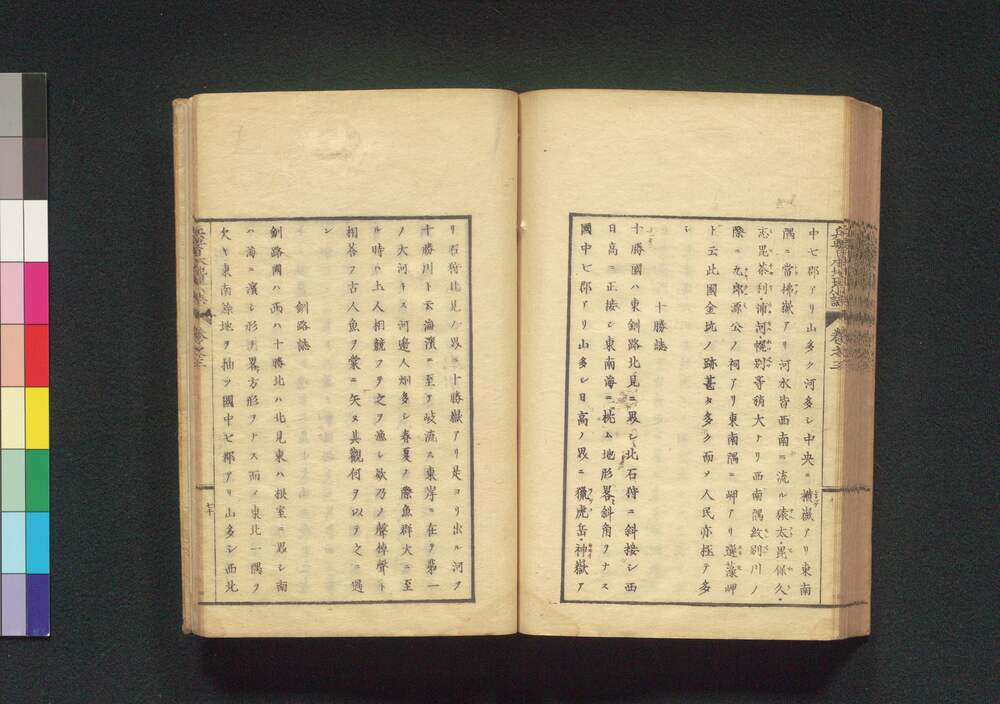 中七郡アリ山多ク河多シ中央ニ横嶽アリ東南
隅ニ當挿嶽アリ河水皆西南ニ流ル猿太・毘保久・
志毘茶利・浦河・幌別等稍大ナリ西南隅紋別川ノ
際ニ九郎源公ノ祠アリ東南隅ニ岬アリ蓬藻岬
ト云此國金坑ノ跡甚タ多ク而メ人民亦極テ多
シ
十勝誌
十勝國ハ東釧路北見ニ界シ北石狩ニ斜接シ西
日高ニ正接シ東南海ニ枕ム地形畧斜角ヲナス
國中七郡アリ山多シ日高ノ界ニ獵虎岳・神嶽ア
リ石狩北見ノ界ニ十勝嶽アリ是ヨリ出ル河ヲ
十勝川ト云海濱ニ至テ岐流ス東岸ニ在ヲ第一
ノ大河トス河邊人烟多シ春夏ノ際魚群大ニ至
ル時ハ土人相競フヲ之ヲ漁シ欸乃ノ聲棹聲ト
相答フ古人魚ヲ棠ニ矢ス其觀何ヲ以テ之ニ過
ン
釧路誌
釧路國ハ西ハ十勝北ハ北見東ハ根室ニ界シ南
ハ海ニ濱シ形畧方形ヲナス而メ東北一隅ヲ
欠キ東南原地ヲ抽ツ國中七郡アリ山多シ西北
卷之三
七十